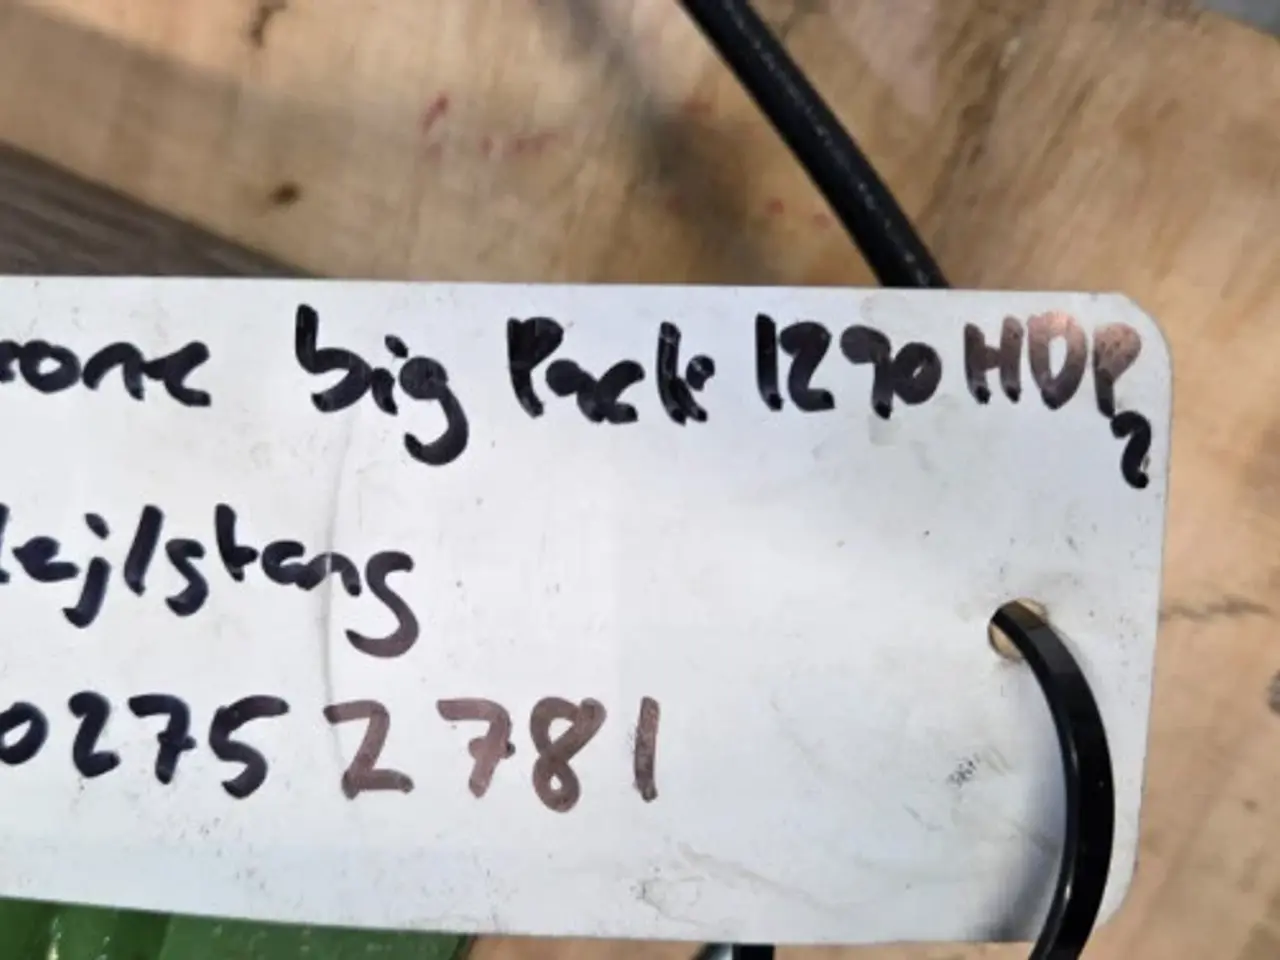 rone big Pack 1290 HDP
2
lejlstang
02752781